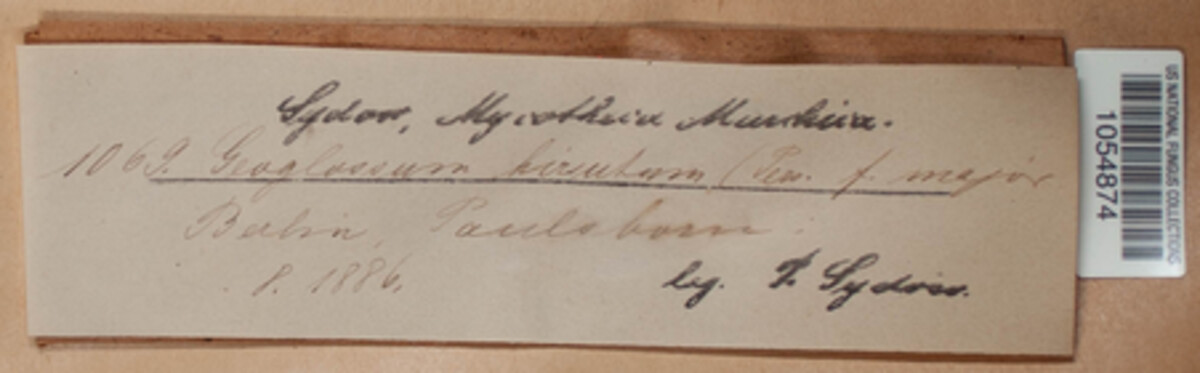 Sydow, Mycotheca Marchica.
1069. Geoglossum hirsutum (Pers. f. major
Berlin, Paulsborn.
8. 1886.
leg. P. Sydow.
US NATIONAL FUNGUS COLLECTIONS
1054874